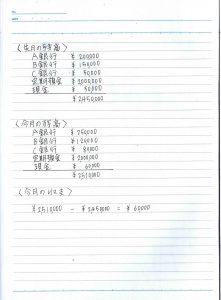 〈先月の残高〉
A銀行 ¥ 200000
B銀行 ¥ 150000
C銀行 ¥ 50000
定期預金 ¥ 2000000
現金 ¥ 50000
¥ 2450000
〈今月の残高〉
A銀行 ¥ 250000
B銀行 ¥ 120000
C銀行 ¥ 80000
定期預金 ¥ 2000000
現金 ¥ 60000
¥ 2510000
〈今月の収支〉
¥ 2510000 - ¥ 2450000 = ¥ 60000